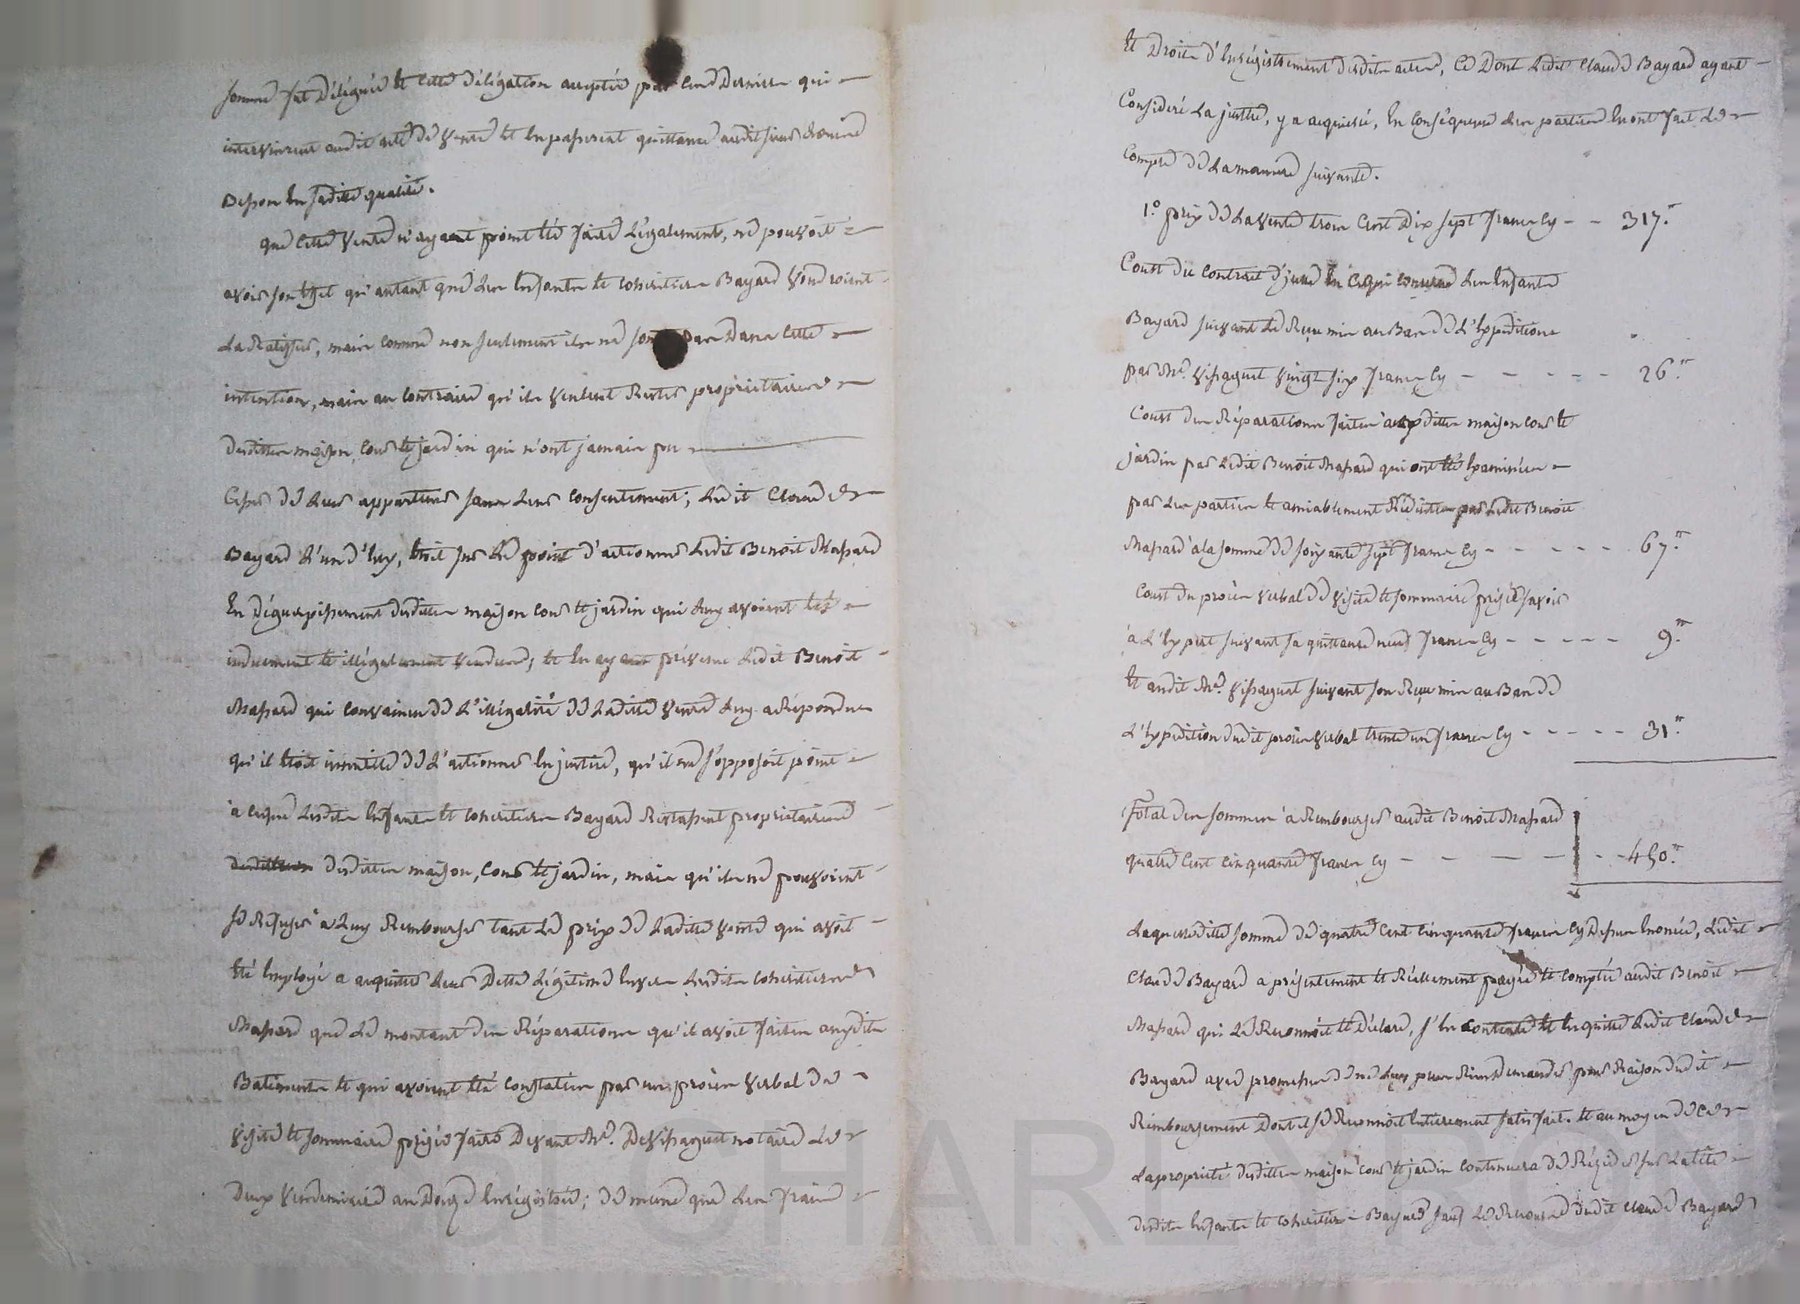 somme fut déléguée et cette délégation acceptée par ces derniers qui
intervinrent audit acte de vente et en passerent quittance audit sieur
Besson en saditte qualité.
que cette vente n'ayant point été faite légalement, ne pouvoit
avoir son effet qu'autant que les enfants et heritiers Bayard voudroient
la Ratifier, mais comme non seulement ils ne sont pas dans cette
intention, mais au contraire qu'ils veulent Rester propriétaires
desdittes maison, cour et jardin qui n'ont jamais pu
cesser de leur appartenir sans leur consentement; ledit Claude
Bayard l'un d'eux, étoit sur le point d'actionner ledit Benoit Massard
en déguerpissement desdittes maison cour et jardin qui luy avoient été
induement et illégalement vendues; et en ayant prévenu ledit Benoit
Massard qui convaincu de l'illégalité de laditte vente luy a Répondu
qu'il étoit inutile de l'actionner en justice, qu'il ne s'opposoit point
à ce que lesdits enfants et heritiers Bayard Restassent propriétaires
desdittes maison, cour et jardin, mais qu'ils ne pouvoient
se Refuser à luy Rembourser tant le prix de laditte vente qui avoit
été employé a acquitter leur dette légitime envers lesdits heritiers
Massard que le montant des Réparations qu'il avoit faites auxdits
Batiments et qui avoient été constatées par un procès verbal de
visite et sommaire prisée fait devant Me. Devissaguet notaire le
deux vendemiaire an douze enrégistré; de meme que les frais
et Droits d'Enrégistrement desdits actes, Ce Dont ledit Claude Bayard ayant
Consideré la justice, y a acquiescé, En conséquence les parties en ont fait le
Compte de la maniere suivante.
1.° prix de la vente trois Cent Dix sept francs Cy - - 317.
Coust du contrat d'icelle en ce qui concerne les Enfants
Bayard suivant le Reçu mis au Bas de l'Expedition
par Me. Vissaguet vingt six francs Cy - - - - - 26.
Coust des Réparations faites auxdittes maison cour et
jardin par ledit Benoit Massard qui ont été Examinées
par les parties et amiablement Réduittes par ledit Benoit
Massard à la somme de soixante sept francs Cy - - - - - 67.
Coust du procès verbal de visite et sommaire prisée savoir
à l'Expert suivant sa quittance neuf francs Cy - - - - - 9.
et audit Me. Vissaguet suivant son Reçu mis au Bas de
l'Expedition dudit procès verbal trente un francs Cy - - - - - 31.
Total des sommes à Rembourser audit Benoit Massard
quatre Cent cinquante francs Cy - - - - - 450.
Laquelleditte somme de quatre cent cinquante francs Cy dessus Enoncée, Ledit
Claude Bayard a présentement et Réellement payé et compté audit Benoit
Massard qui le Reconnoit et déclare, s'en contente et en quitte ledit Claude
Bayard avec promesse de ne luy plus Rien demander pour Raison dudit
Remboursement Dont il se Reconnoit Entierement satisfait. et au moyen de ce
la propriété desdittes maison cour et jardin continuera de Résider sur la tête
desdits Enfants et heritiers Bayard sauf le Recours dudit Claude Bayard